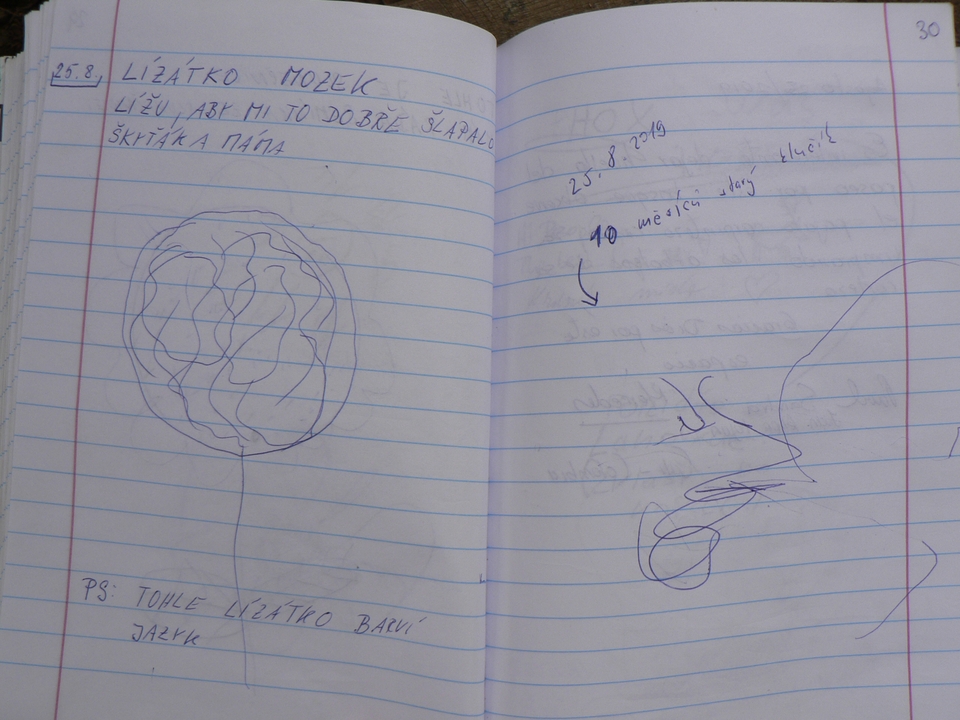 25.8. LÍZÁTKO MOZEK
LÍŽU, ABY MI TO DOBŘE ŠLAPALO
ŠKRŤÁK A MÁMA
PS: TOHLE LÍZÁTKO BARVÍ
JAZYK
30
25.8.2019
10 měsíců starý klučík